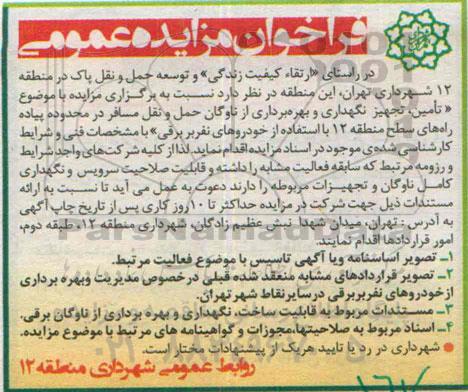 فراخوان مزایده عمومی
در راستای «ارتقاء کیفیت زندگی» و توسعه حمل و نقل پاک در منطقه
۱۲ شهرداری تهران، این منطقه در نظر دارد نسبت به برگزاری مزایده با موضوع
«تأمین، تجهیز نگهداری و بهره‌برداری از ناوگان حمل و نقل مسافر در محدوده پیاده
راه‌های سطح منطقه ۱۲ با استفاده از خودروهای نفربر برقی» با مشخصات فنی و شرایط
کارشناسی شده‌ی موجود در اسناد مزایده اقدام نماید. لذا از کلیه شرکت‌های واجد شرایط
و رزومه مرتبط که سابقه فعالیت مشابه را داشته و قابلیت صلاحیت سرویس و نگهداری
کامل ناوگان و تجهیزات مربوطه را دارند دعوت به عمل می آید تا نسبت به ارائه
مستندات ذیل جهت شرکت در مزایده حداکثر تا ۱۰ روز کاری پس از تاریخ چاپ آگهی
به آدرس: تهران، میدان شهدا نبش عظیم زادگان، شهرداری منطقه ۱۲، طبقه دوم،
امور قراردادها اقدام نمایند.
۱ـ تصویر اساسنامه ویا آگهی تاسیس با موضوع فعالیت مرتبط.
۲ـ تصویر قراردادهای مشابه منعقد شده قبلی در خصوص مدیریت وبهره برداری
از خودروهای نفربر برقی در سایر نقاط شهر تهران.
۳ـ مستندات مربوط به قابلیت ساخت، نگهداری و بهره برداری از ناوگان برقی.
۴ـ اسناد مربوط به صلاحیتها، مجوزات و گواهینامه های مرتبط با موضوع مزایده.
● شهرداری در رد یا تایید هریک از پیشنهادات مختار است.
روابط عمومی شهرداری منطقه ۱۲
ParsNamadData